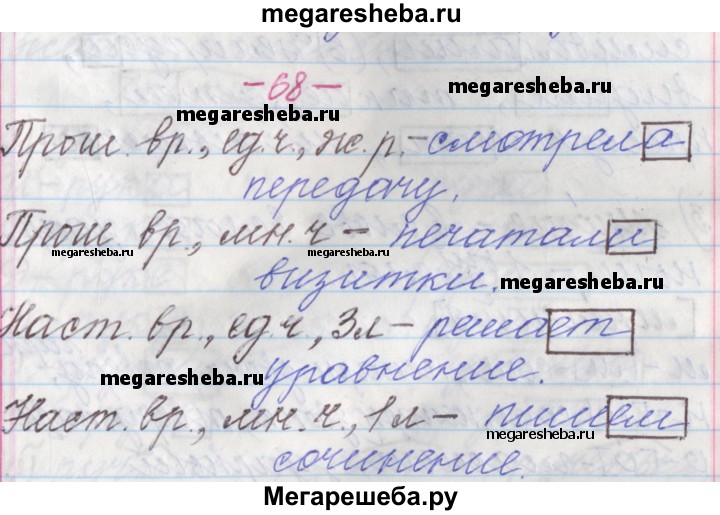 megaresheba.ru
-68-
megaresheba.ru
megaresheba.ru
Прош. вр., ед.ч., ж.р. - смотрела
передачу.
Прош. вр., мн.ч - печатали
megaresheba.ru
megaresheba.ru
megaresheba.ru
визитки.
megaresheba.ru
Наст. вр., ед.ч., 3л - решает
уравнение.
megaresheba.ru
Наст. вр., мн.ч., 1л - пишем
megaresheba.ru
сочинение.
Мегарешеба.ру